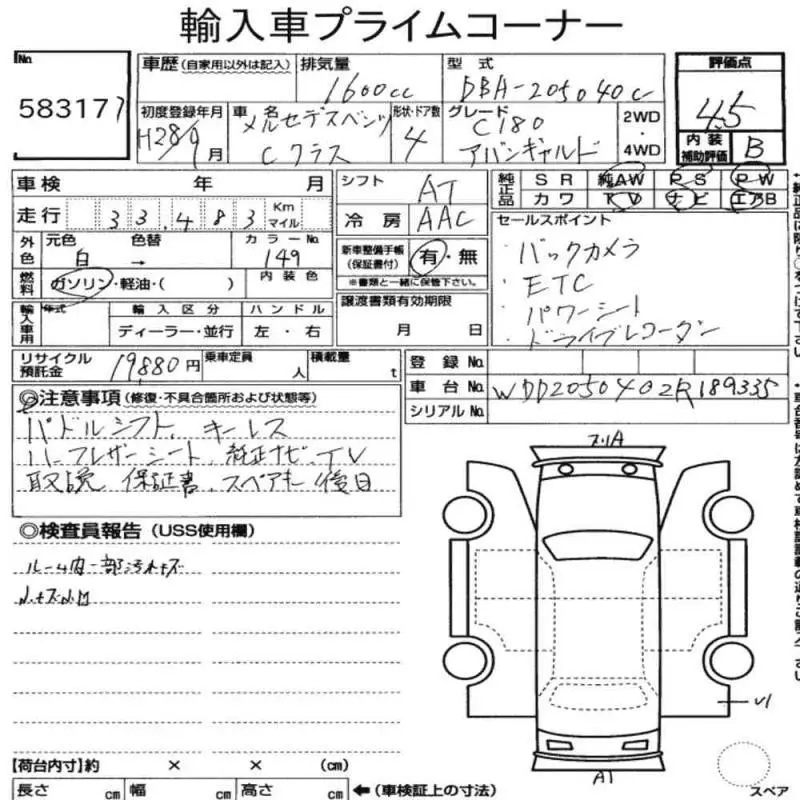 輸入車プライムコーナー
No.
58317
車歴 (自家用以外は記入)
排気量
1600cc
型式
DBA-205040C
評価点
4.5
初度登録年月
H28 9月
車名
メルセデスベンツ
Cクラス
形状・ドア数
4
グレード
C180
アバンギャルド
2WD
・
4WD
内装
補助評価
B
車検 年 月
走行 33,483 Km マイル
シフト AT
冷房 AAC
純正品 SR 純AW PS PW
カワ TV ナビ エアB
外色
元色 色替 カラーNo.
白 → 149
新車整備手帳
(保証書付)
有・無
※書類と一緒に保管下さい。
セールスポイント
・バックカメラ
・ETC
・パワーシート
・ドライブレコーダー
燃料
ガソリン・軽油・( )
内装色
輸入車用
年式
輸入区分
ハンドル
ディーラー・並行
左・右
譲渡書類有効期限
月 日
リサイクル
預託金
19,880円
乗車定員
人
積載量
t
登録No.
車台No. WDD2050402R189335
シリアルNo.
◎注意事項 (修復・不具合箇所および状態等)
パドルシフト、キーレス
ハーフレザーシート、純正ナビ、TV
取説 保証書、スペアキー 後日
◎検査員報告 (USS使用欄)
ルーム内一部汚れキズ
小キズ小凹
フリA
U1
A1
スペア
【荷台内寸】約 × × (cm)
長さ cm 幅 cm 高さ cm
←(車検証上の寸法)